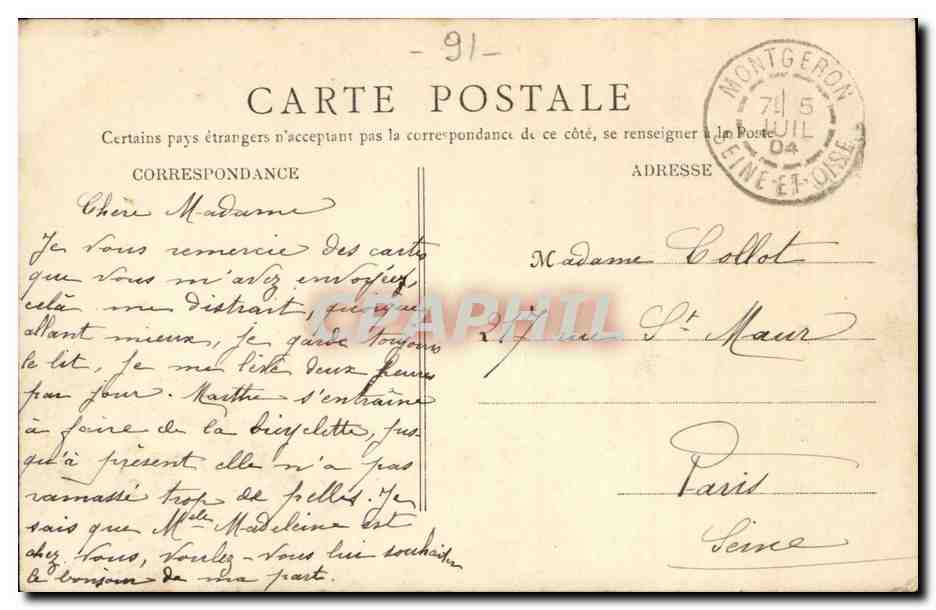 - 91 -
CARTE POSTALE
Certains pays étrangers n'acceptant pas la correspondance de ce côté, se renseigner à la Poste
CORRESPONDANCE
ADRESSE
MONTGERON
7E 5
JUIL
04
SEINE-ET-OISE
Chère Madame
Je vous remercie des cartes
que vous m'avez envoyées,
celà me distrait, quoique
allant mieux, je garde toujours
le lit, je me lève deux heures
par jour. Marthe s'entraîne
à faire de la bicyclette, jus-
qu'à présent elle n'a pas
ramassé trop de pelles. Je
sais que Melle Madeleine est
chez vous, voulez-vous lui souhaiter
le bonjour de ma part.
Madame Collot
217 rue St Maur
Paris
Seine
CPAPHIL